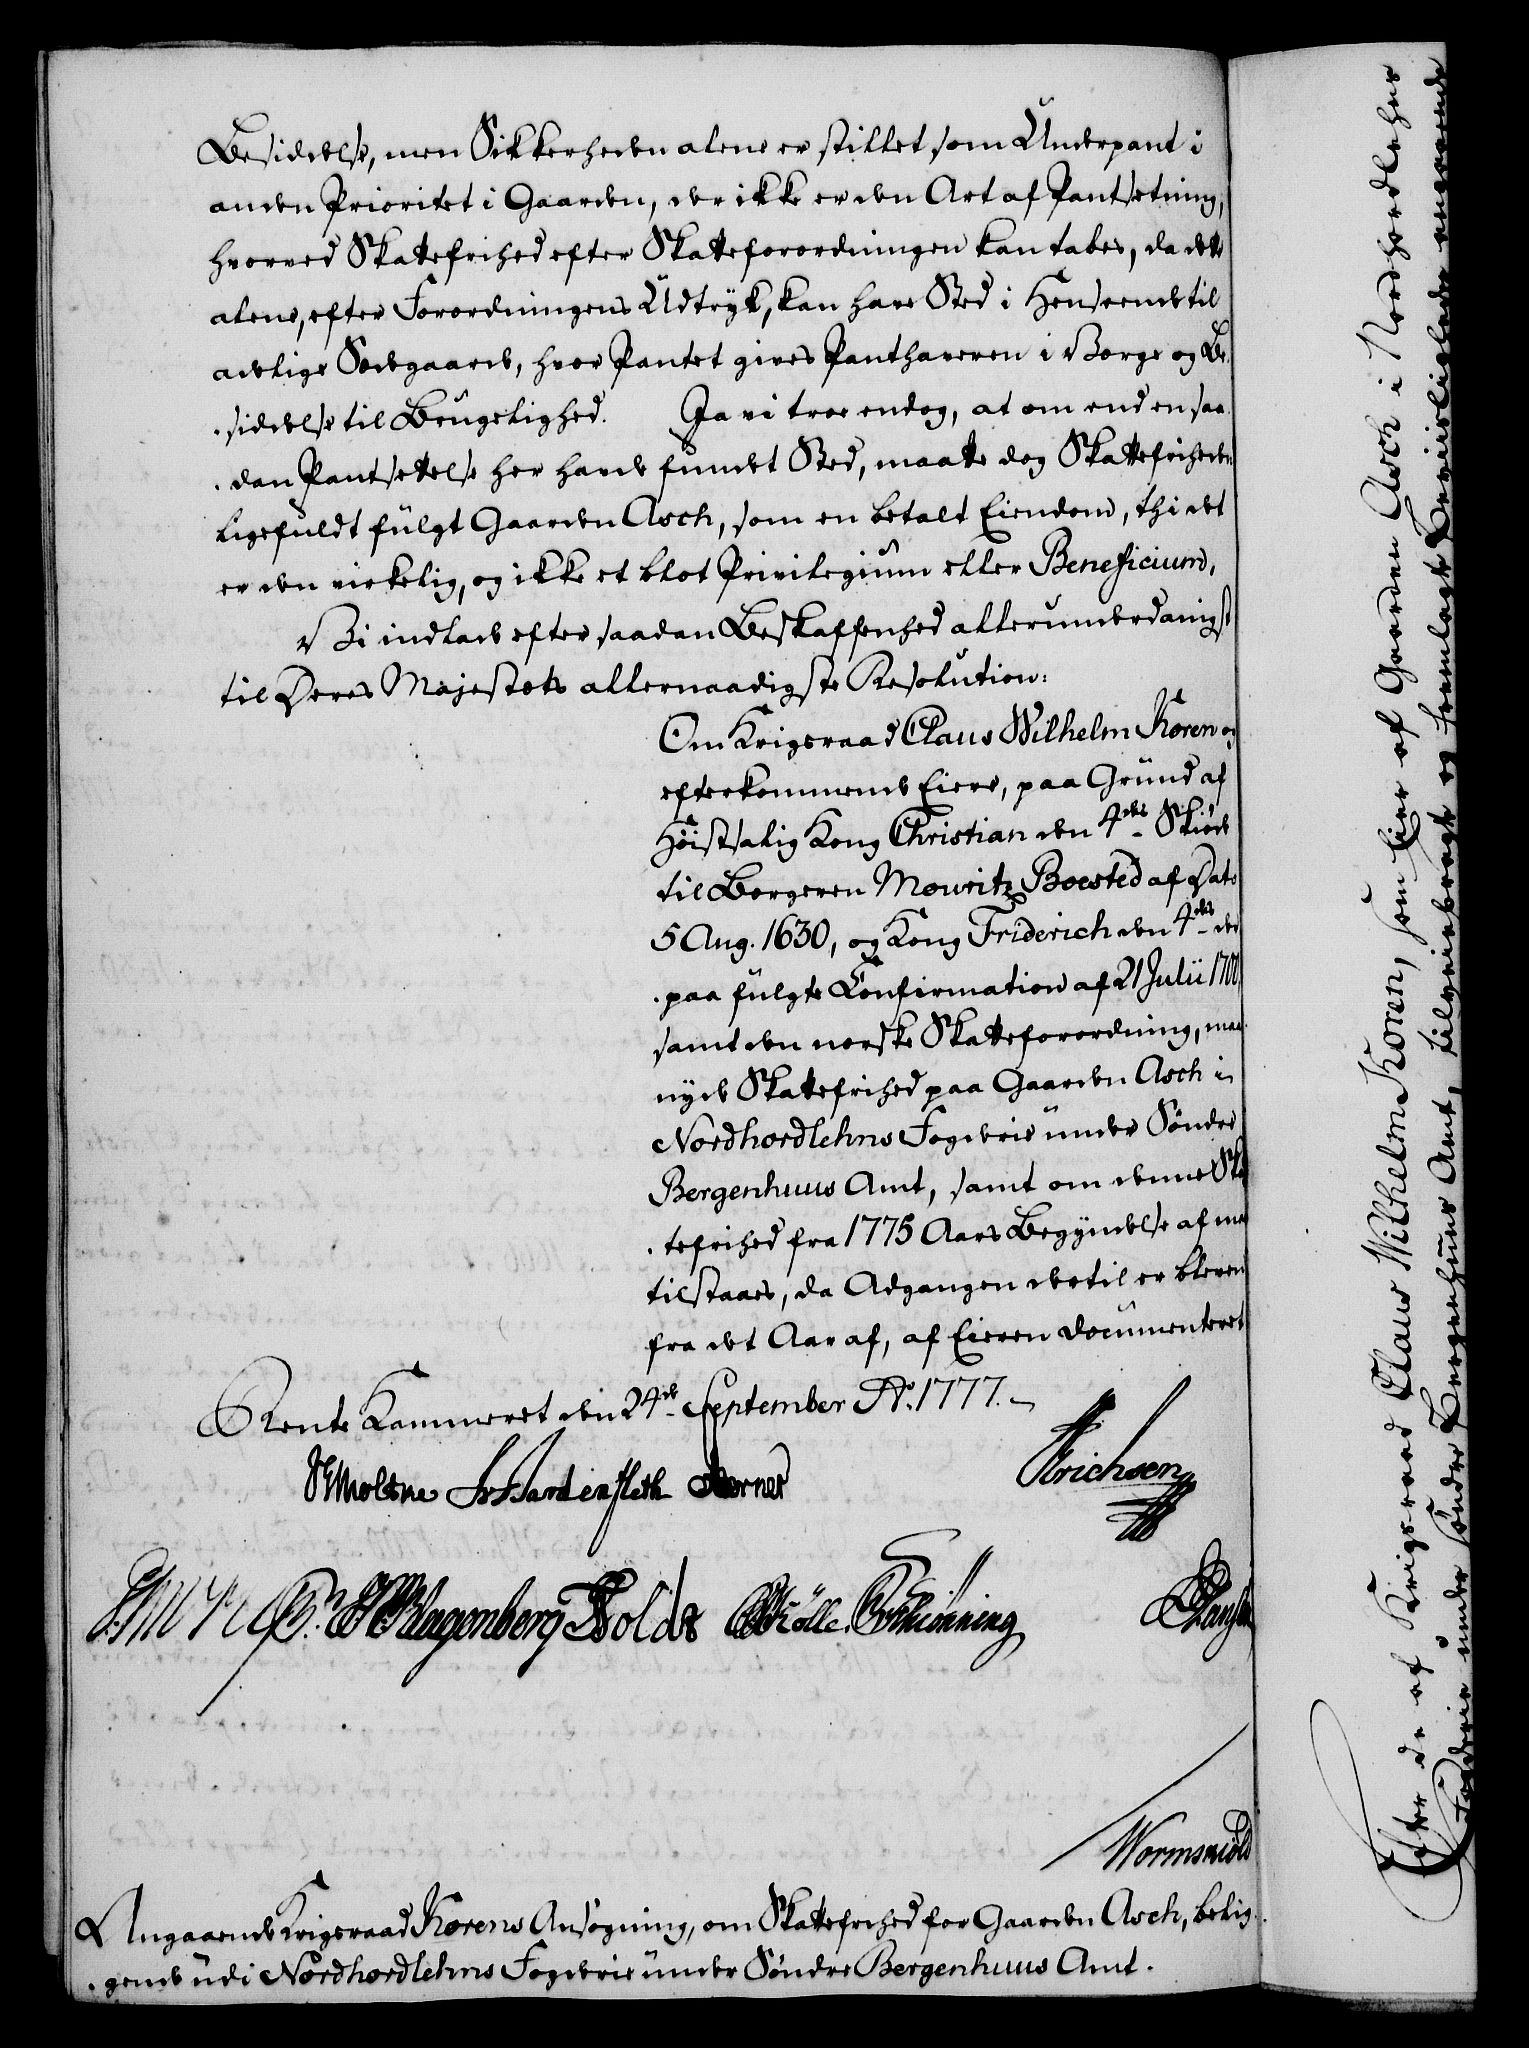 Besiddelse, men Sikkerheden alene er stillet som Underpant i
anden Prioritet i Gaarden, der ikke er den Art af Pantsetning,
hvorved Skattefrihed efter Skatteforordningen kan tabes, da dette
alene, efter Forordningens Udtryk, kan have Sted i Henseende til
adelige Sædegaarde, hvor Pantet gives Panthaveren i Værge og Be-
siddelse til Brugelighed. Ja vi troe endog, at om end en saa-
dan Pantsettelse her havde fundet Sted, maatte dog Skattefriheden
ligefuldt fulgt Gaarden Asch, som en betalt Eiendom, thi det
er den virkelig, og ikke et blot Privilegium eller Beneficium,
Vi indlade efter saadan Beskaffenhed allerunderdanigst
til Deres Majestæts allernaadigste Resolution:
Om Krigsraad Claus Wilhelm Koren og
efterkommende Eiere, paa Grund af
Høistsalig Kong Christian den 4des Skiøde
til Borgeren Mouritz Boested af Dato
5 Aug. 1630, og Kong Friderich den 4des der-
paa fulgte Confirmation af 21 Julii 1700,
samt den norske Skatteforordning, maa
nyde Skattefrihed paa Gaarden Asch i
Nordhordlehns Fogderie under Sønder
Bergenhuus Amt, samt om denne Skat-
tefrihed fra 1775 Aars Begyndelse af maa
tilstaaes, da Adgangen dertil er bleven
fra det Aar af, af Eieren documenteret
Rente Kammeret den 24de September Ao. 1777.
Moltke Hardenfleth Berner Erichsen
Klagenberg Holde Mölle Schiönning Hansen
Wormskiold
Angaaende Krigsraad Korens Ansøgning, om Skattefrihed for Gaarden Asch, belig-
gende udi Nordhordlehns Fogderie under Søndre Bergenhuus Amt.
Efter de af Krigsraad Claus Wilhelm Koren, som Eier af Gaarden Asch i Nordhordlehns
Fogderie under Sønder Bergenhuus Amt, tilveiebragte og fremlagte Beviisligheder